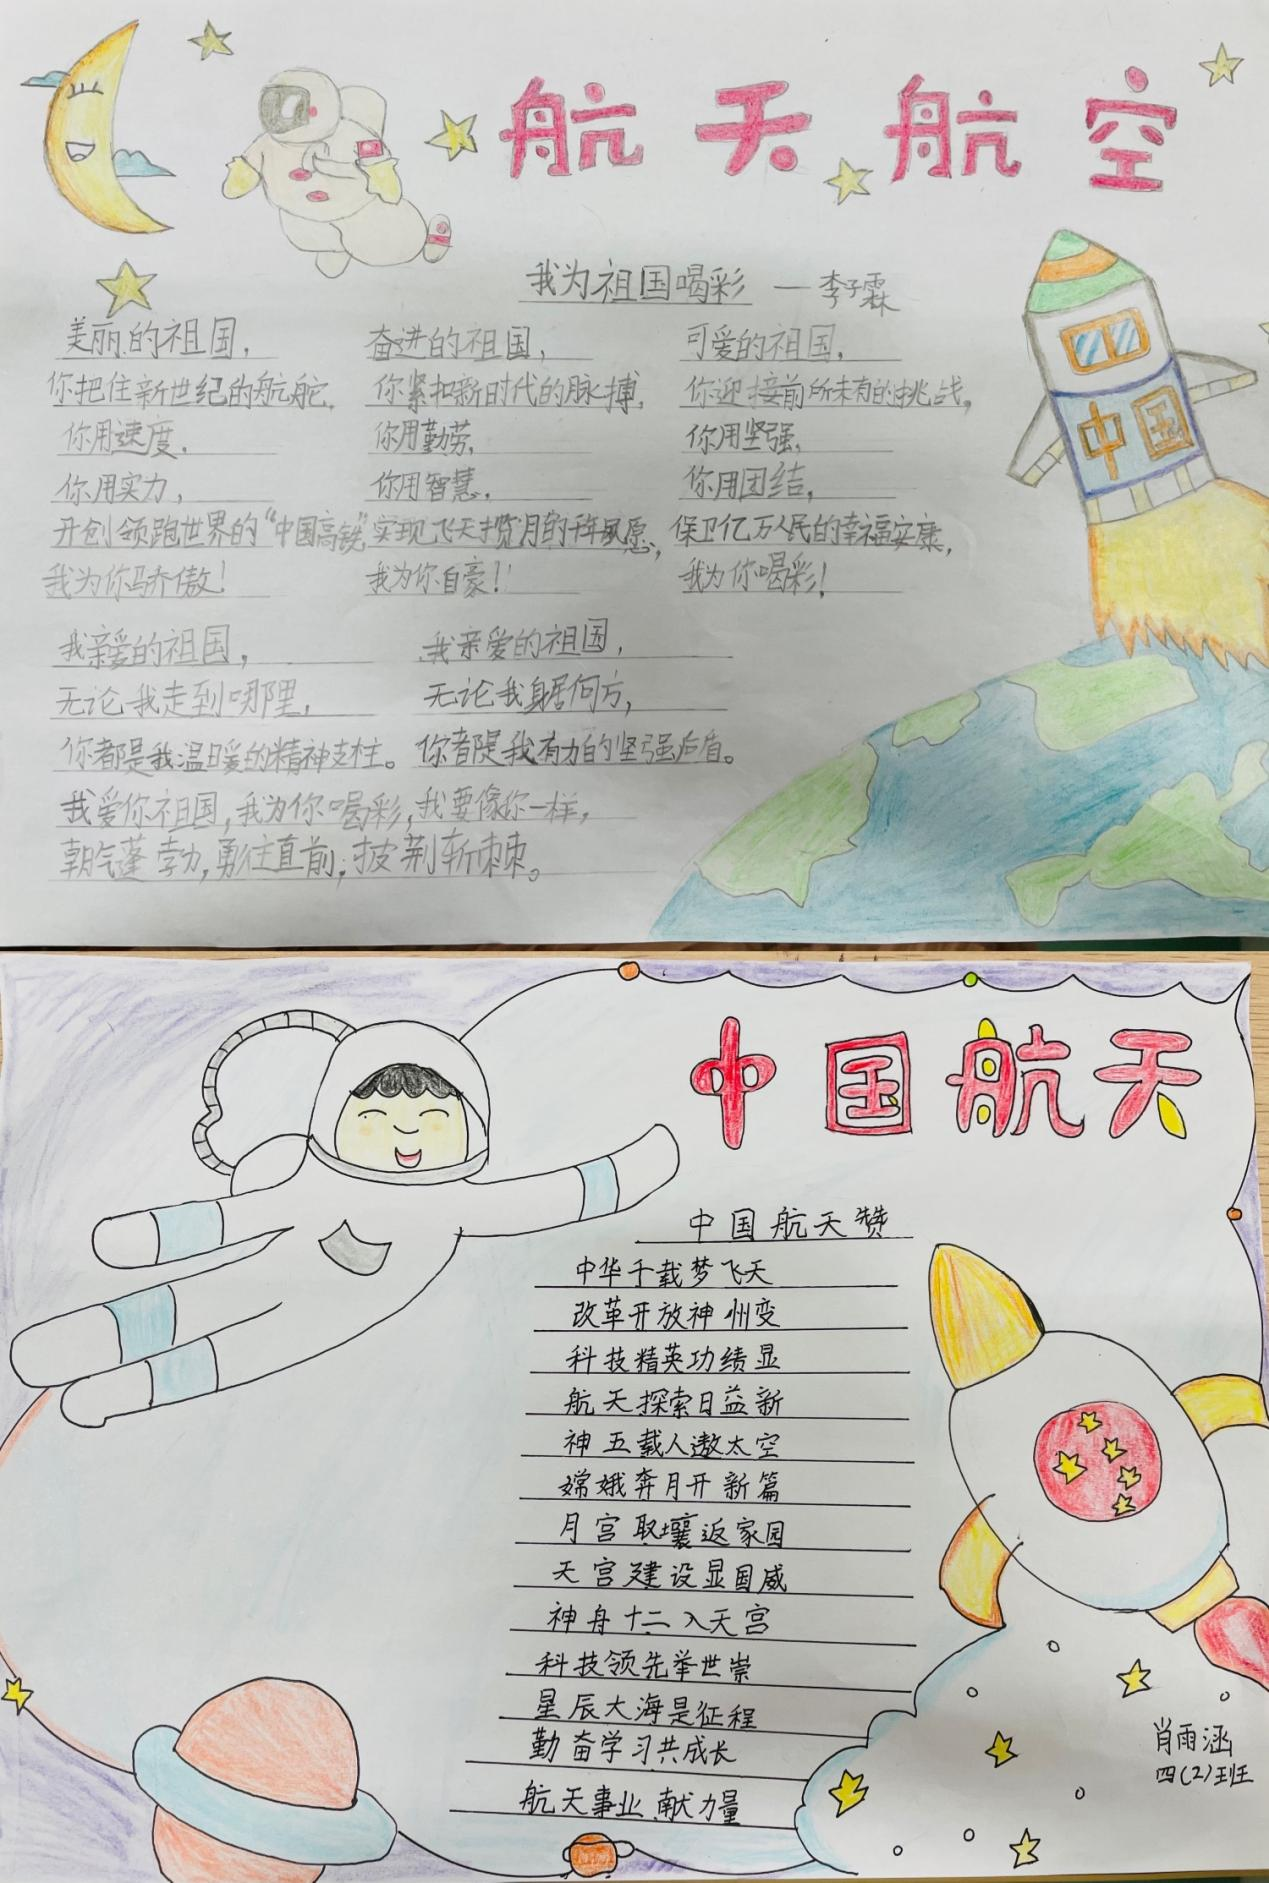 航天航空
我为祖国喝彩 — 李子霖
美丽的祖国,
你把住新世纪的航舵,
你用速度,
你用实力,
开创领跑世界的“中国高铁”
我为你骄傲!
奋进的祖国,
你紧扣新时代的脉搏,
你用勤劳,
你用智慧,
实现飞天揽月的千年夙愿,
我为你自豪!
可爱的祖国,
你迎接前所未有的挑战,
你用坚强,
你用团结,
保卫亿万人民的幸福安康,
我为你喝彩!
我亲爱的祖国,
无论我走到哪里,
你都是我温暖的精神支柱。
我亲爱的祖国,
无论我身居何方,
你都是我有力的坚强后盾。
我爱你祖国,我为你喝彩,我要像你一样,
朝气蓬勃,勇往直前,披荆斩棘。
中国
中国航天
中国航天赞
中华千载梦飞天
改革开放神州变
科技精英功绩显
航天探索日益新
神五载人遨太空
嫦娥奔月开新篇
月宫取壤返家园
天宫建设显国威
神舟十二入天宫
科技领先举世崇
星辰大海是征程
勤奋学习共成长
航天事业献力量
肖雨涵
四(2)班